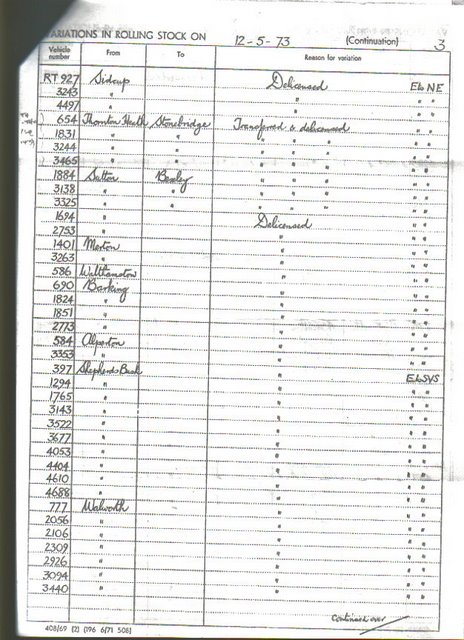 VARIATIONS IN ROLLING STOCK ON 12-5-73 (Continuation) 3
Vehicle number From To Reason for variation
RT 927 Sidcup Delicensed Els NE
3243 " " " "
4497 " " " "
654 Thornton Heath Stonebridge Transferred & delicensed " "
1831 " " " " " " "
3244 " " " " " " "
3465 " " " " " " "
1884 Sutton Bexley " " " " "
3138 " " " " " " "
3325 " " " " " " "
1694 " Delicensed " "
2753 " " " "
1401 Merton " " "
3263 " " " "
586 Walthamstow " " "
690 Barking " " "
1824 " " " "
1851 " " " "
2773 " " " "
584 Alperton " " "
3353 " " " "
397 Shepherds Bush " Els SVS
1294 " " " "
1765 " " " "
3143 " " " "
3522 " " " "
3677 " " " "
4053 " " " "
4404 " " " "
4610 " " " "
4688 " " " "
777 Walworth " " "
2056 " " " "
2106 " " " "
2309 " " " "
2926 " " " "
3094 " " " "
3440 " " " "
Continued over
408/69 (2) (196 6/71 508)